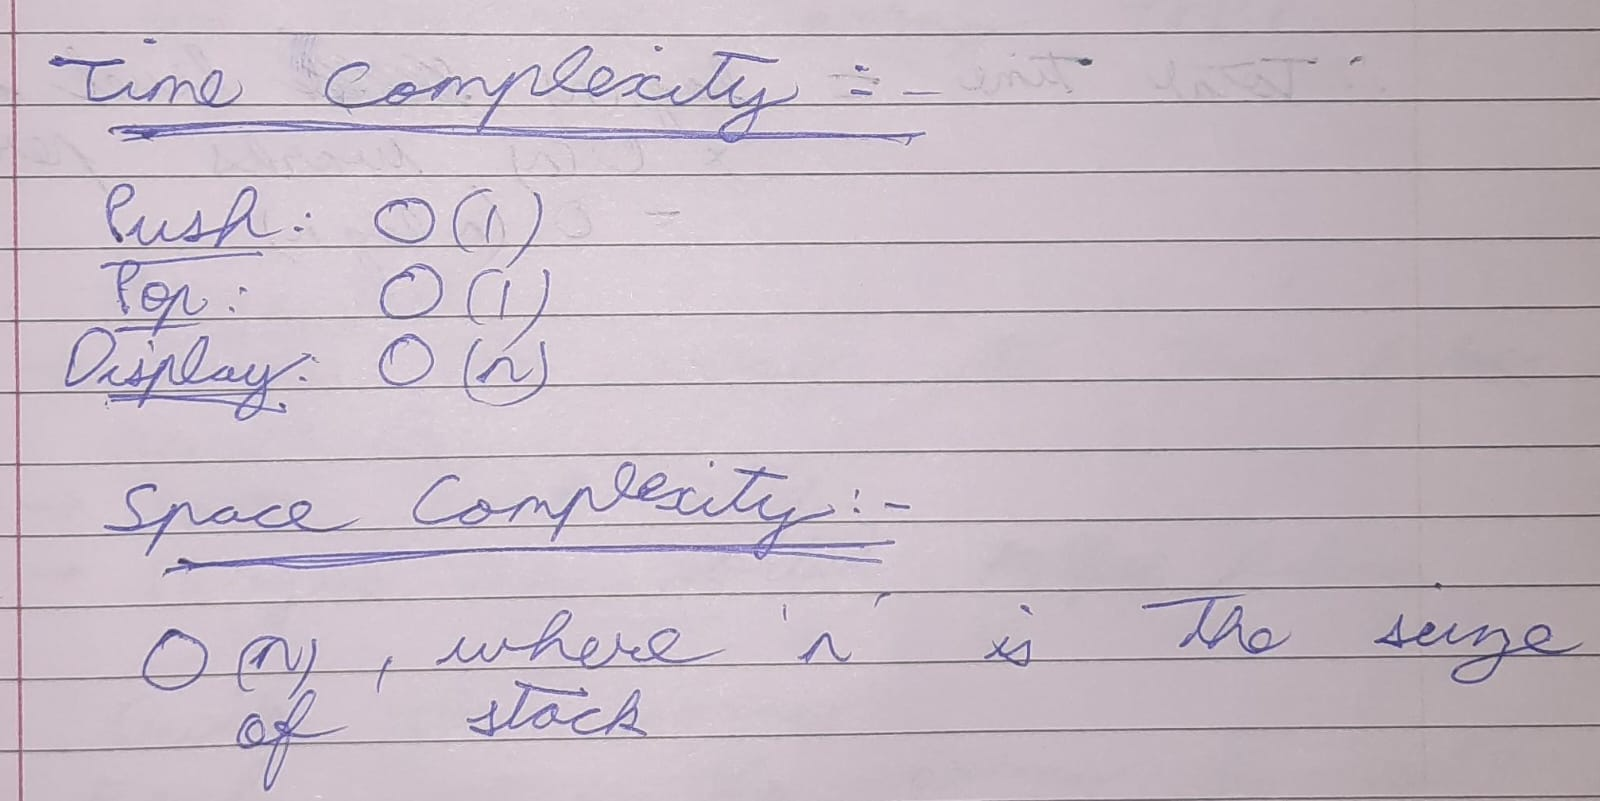 Time Complexity :-
Push: O(1)
Pop: O(1)
Display: O(n)
Space Complexity :-
O(n), where 'n' is the seize
of stack